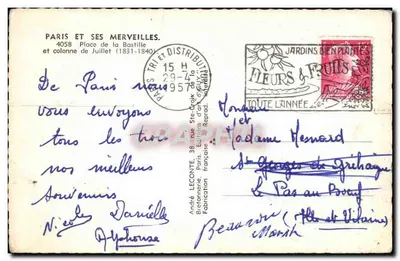 PARIS ET SES MERVEILLES.
4058 Place de la Bastille
et colonne de Juillet (1831-1840)
PARIS TRI ET DISTRIBUTION
15 H
29-4
1957
JARDINS BIEN PLANTÉS
FLEURS & FRUITS
TOUTE L'ANNÉE
De Paris nous
vous envoyons
tous les trois
nos meilleurs
souvenirs
Nicole Danielle
Alphonse
André LECONTE, 38, rue Ste-Croix de la
Bretonnerie, Paris. Editions d'art
Fabrication française Reprod. interdite
Monsieur
et
Madame Mesnard
St Georges de Gréhaigne
Le Pas au Boeuf
(Ille et Vilaine)
Beauvoir
Manche
delcampe